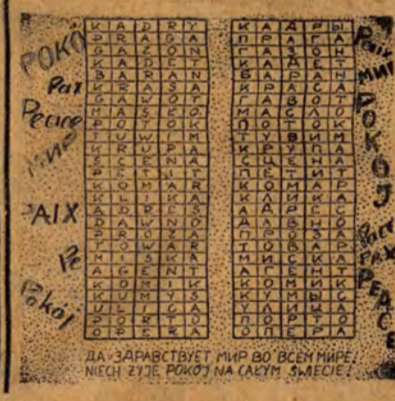 POKÓJ
Pax
Peace
МИР
PAIX
Pe
Pokój
KADRY
PRAGA
GAZON
KADET
BARAN
KRASA
GAWOT
MASŁO
POTOK
TUWIM
KRUPA
SCENA
PETIT
KOMAR
KLIKA
ADRES
DAWNO
PROZA
TOWAR
MISKA
AGENT
KOMIK
KUMYS
ULICA
PORTO
OPERA
КАДРЫ
ПРАГА
ГАЗОН
КАДЕТ
БАРАН
КРАСА
ГАВОТ
МАСЛО
ПОТОК
ТУВИМ
КРУПА
СЦЕНА
ПЕТИТ
КОМАР
КЛИКА
АДРЕС
ДАВНО
ПРОЗА
ТОВАР
МИСКА
АГЕНТ
КОМИК
КУМЫС
УЛИЦА
ПОРТО
ОПЕРА
Paix
МИР
POKÓJ
PAX
PEACE
ДА ЗДРАВСТВУЕТ МИР ВО ВСЕМ МИРЕ!
NIECH ŻYJE POKÓJ NA CAŁYM ŚWIECIE!